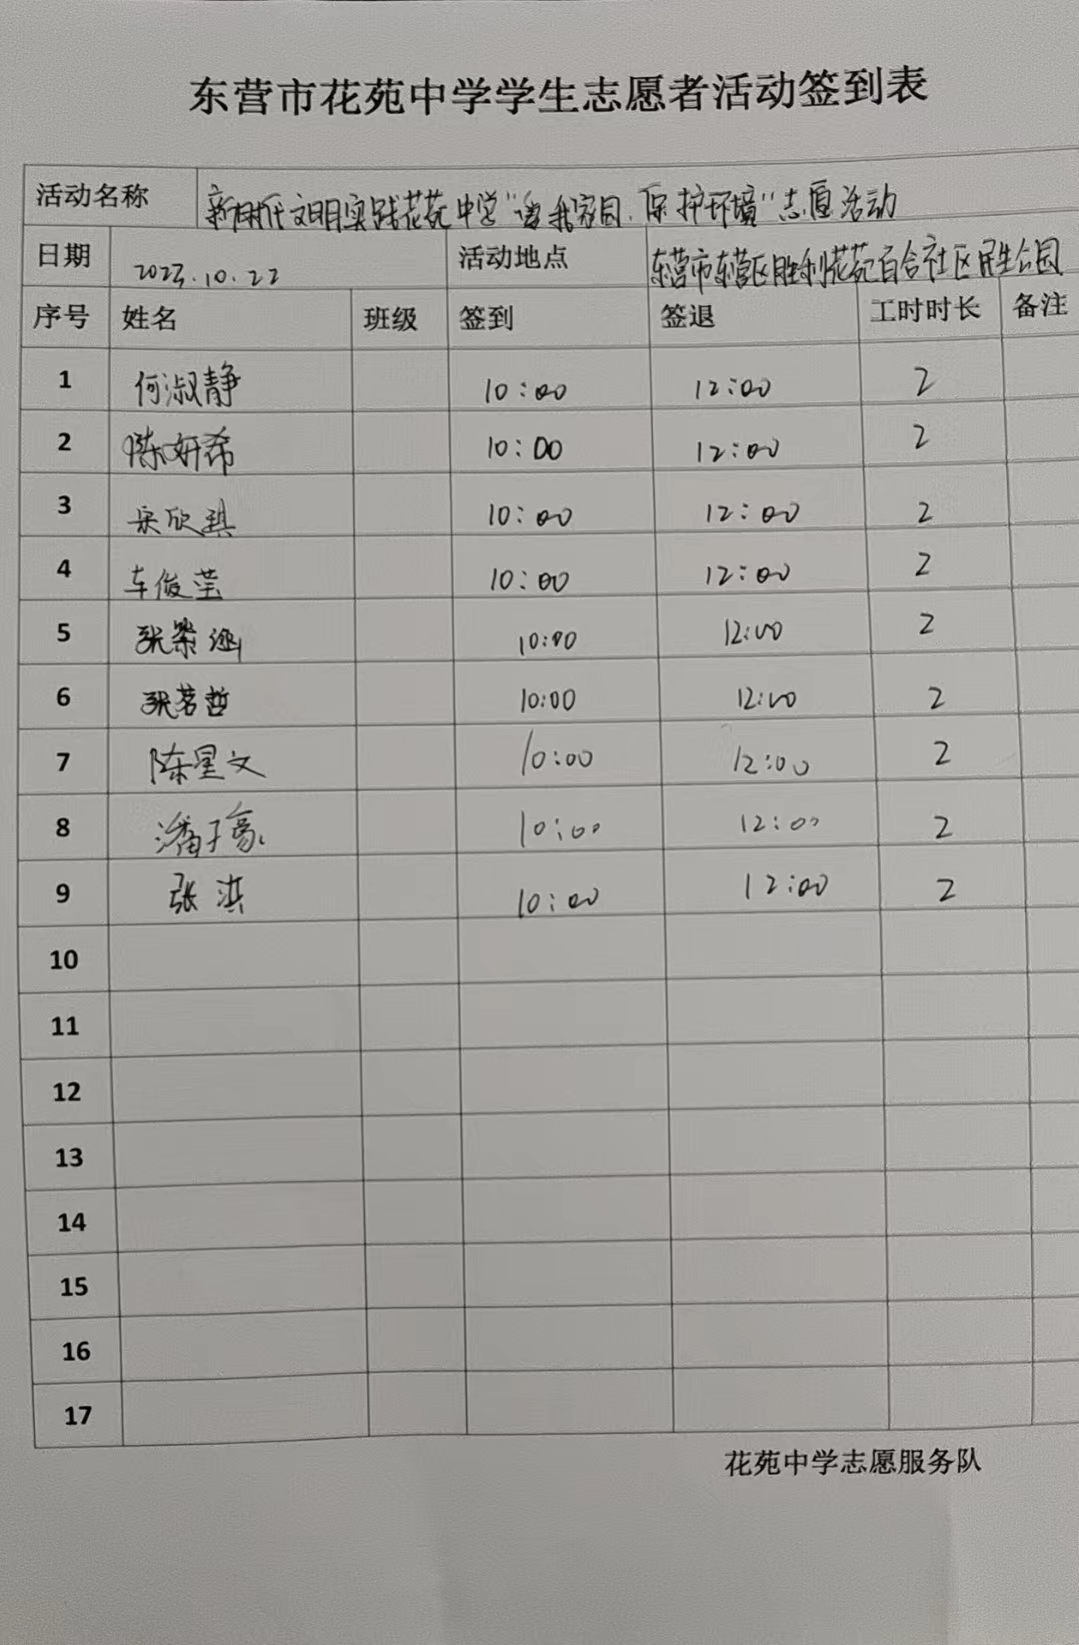 东营市花苑中学学生志愿者活动签到表
活动名称 新时代文明实践花苑中学“爱我家园、保护环境”志愿活动
日期 2023.10.22 活动地点 东营市东营区胜利花苑百合社区民生公园
序号 姓名 班级 签到 签退 工时时长 备注
1 何淑静 10:00 12:00 2
2 陈妍希 10:00 12:00 2
3 欣琪 10:00 12:00 2
4 车俊莹 10:00 12:00 2
5 张紫涵 10:00 12:00 2
6 张茗哲 10:00 12:00 2
7 陈星文 10:00 12:00 2
8 潘子豪 10:00 12:00 2
9 张淇 10:00 12:00 2
10
11
12
13
14
15
16
17
花苑中学志愿服务队